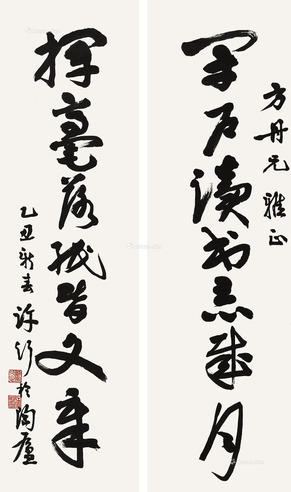 方丹兄雅正
閉户讀書忘歲月
揮毫落紙皆文章
乙丑新春許行於陶廬